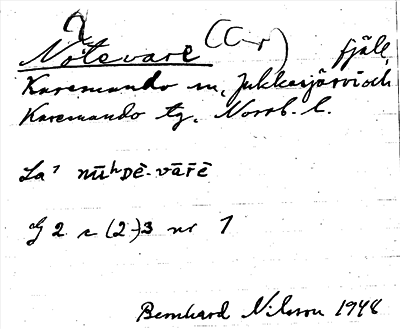 Nötevare (C-r) fjäll
Karesuando sn, Jukkasjärvi och
Karesuando tg. Norrb. l.
La' nūʰDē-vārē
G 2 c (2-)3 nr 1
Bernhard Nilsson 1948